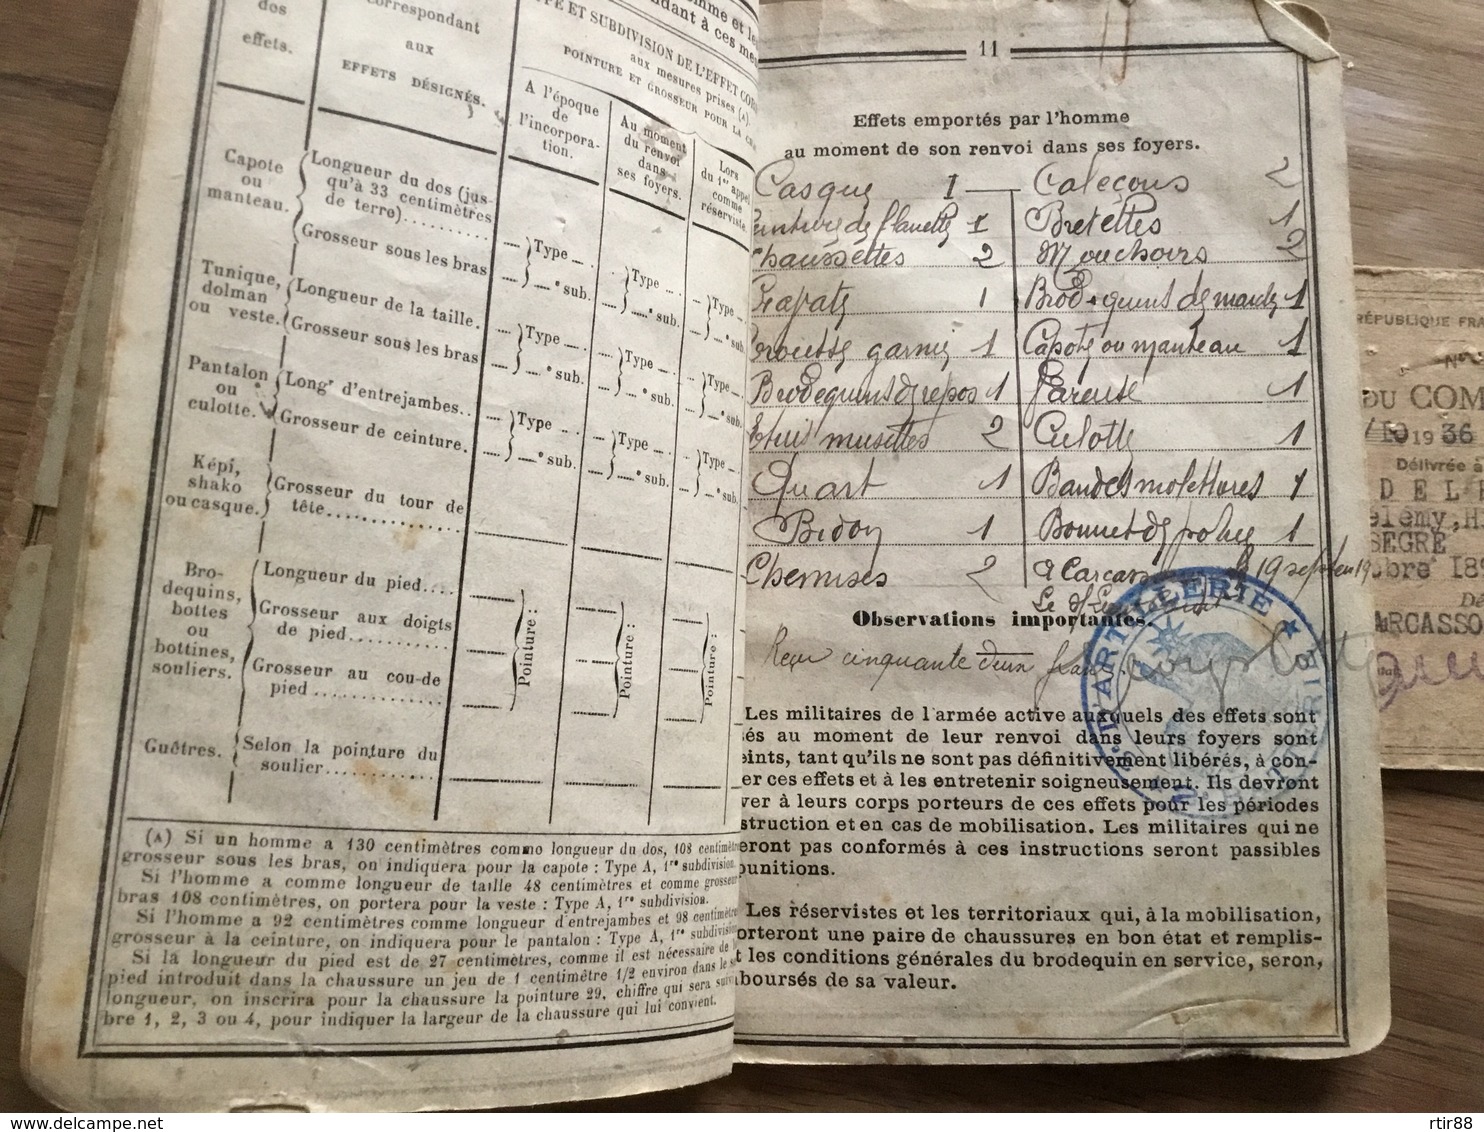 dos
effets.
correspondant
aux
EFFETS DÉSIGNÉS.
ET SUBDIVISION DE L'EFFET
aux mesures prises (A).
POINTURE ET GROSSEUR POUR LA
A l'époque
de
l'incorpora-
tion.
Au moment
du renvoi
dans
ses foyers.
Lors
du 1er appel
comme
réserviste.
Capote
ou
manteau.
Longueur du dos (jus-
qu'à 33 centimètres
de terre)
Grosseur sous les bras
Type
sub.
Type
sub.
Type
sub.
Tunique,
dolman
ou veste.
Longueur de la taille.
Grosseur sous les bras
Type
sub.
Type
sub.
Type
sub.
Pantalon
ou
culotte.
Longr d'entrejambes..
Grosseur de ceinture.
Type
sub.
Type
sub.
Type
sub.
Képi,
shako
ou casque.
Grosseur du tour de
tête
Bro-
dequins,
bottes
ou
bottines,
souliers.
Longueur du pied....
Grosseur aux doigts
de pied
Grosseur au cou-de
pied
Pointure :
Pointure :
Pointure :
Guêtres.
Selon la pointure du
soulier
(A) Si un homme a 130 centimètres comme longueur du dos, 108 centimètr
grosseur sous les bras, on indiquera pour la capote : Type A, 1re subdivision.
Si l'homme a comme longueur de taille 48 centimètres et comme grosseur
bras 108 centimètres, on portera pour la veste : Type A, 1re subdivision.
Si l'homme a 92 centimètres comme longueur d'entrejambes et 98 centimètr
grosseur à la ceinture, on indiquera pour le pantalon : Type A, 1re subdivision
Si la longueur du pied est de 27 centimètres, comme il est nécessaire de
pied introduit dans la chaussure un jeu de 1 centimètre 1/2 environ dans le
longueur, on inscrira pour la chaussure la pointure 29, chiffre qui sera
bre 1, 2, 3 ou 4, pour indiquer la largeur de la chaussure qui lui convient.
11
Effets emportés par l'homme
au moment de son renvoi dans ses foyers.
Casque 1 Caleçons 2
einture de flanelle 1 Bretelles 1
Chaussettes 2 Mouchoirs 2
1 Brodequins de marche 1
garnie 1 Capote ou manteau 1
Brodequins de repos 1 Vareuse 1
Etuis musettes 2 Culotte 1
Quart 1 Bandes molletières 1
Bidon 1 Bonnet de police 1
Chemises 2 A Carcassonne le 19 septem 19
Observations importantes.
Reçu cinquante deux francs
D'ARTILLERIE
Les militaires de l'armée active auxquels des effets sont
sés au moment de leur renvoi dans leurs foyers sont
eints, tant qu'ils ne sont pas définitivement libérés, à con-
er ces effets et à les entretenir soigneusement. Ils devront
ver à leurs corps porteurs de ces effets pour les périodes
struction et en cas de mobilisation. Les militaires qui ne
eront pas conformés à ces instructions seront passibles
punitions.
Les réservistes et les territoriaux qui, à la mobilisation,
orteront une paire de chaussures en bon état et remplis-
t les conditions générales du brodequin en service, seron,
boursés de sa valeur.
RÉPUBLIQUE FRA
No
DU COM
1936
Délivrée à
DEL
élémy, H
SEGRE
obre 18
ARCASSO
rtir88